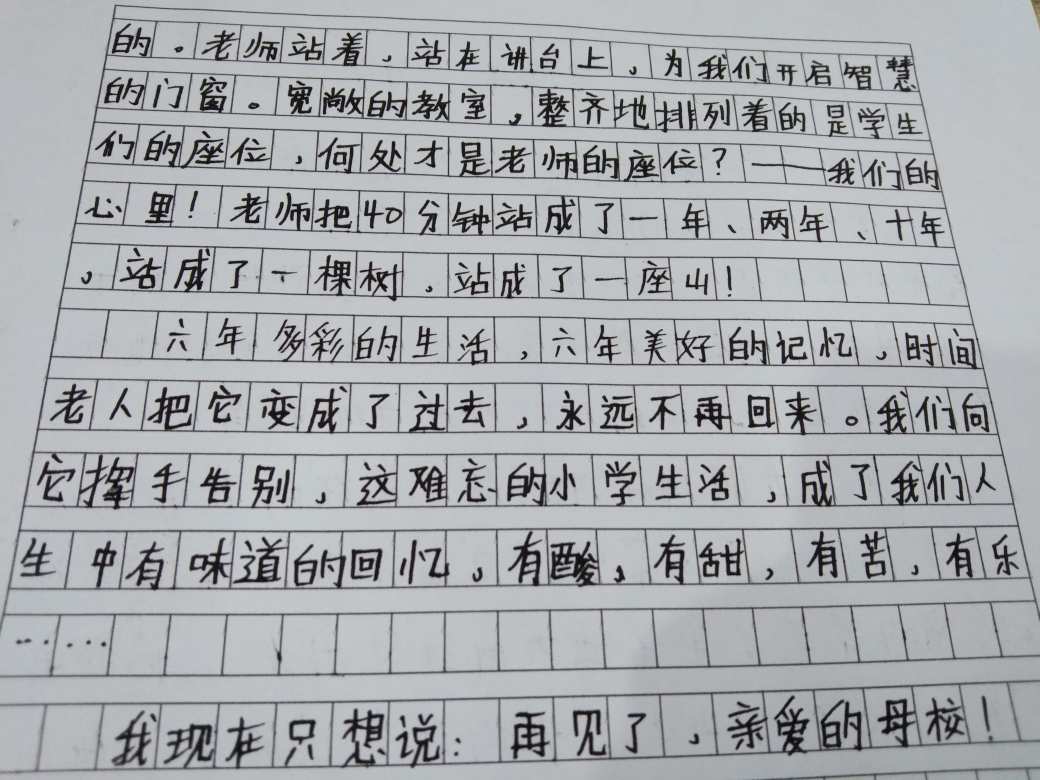 的。老师站着，站在讲台上，为我们开启智慧
的门窗。宽敞的教室，整齐地排列着的是学生
们的座位，何处才是老师的座位？——我们的
心里！老师把40分钟站成了一年、两年、十年
，站成了一棵树，站成了一座山！
六年多彩的生活，六年美好的记忆，时间
老人把它变成了过去，永远不再回来。我们向
它挥手告别，这难忘的小学生活，成了我们人
生中有味道的回忆，有酸，有甜，有苦，有乐
……
我现在只想说：再见了，亲爱的母校！